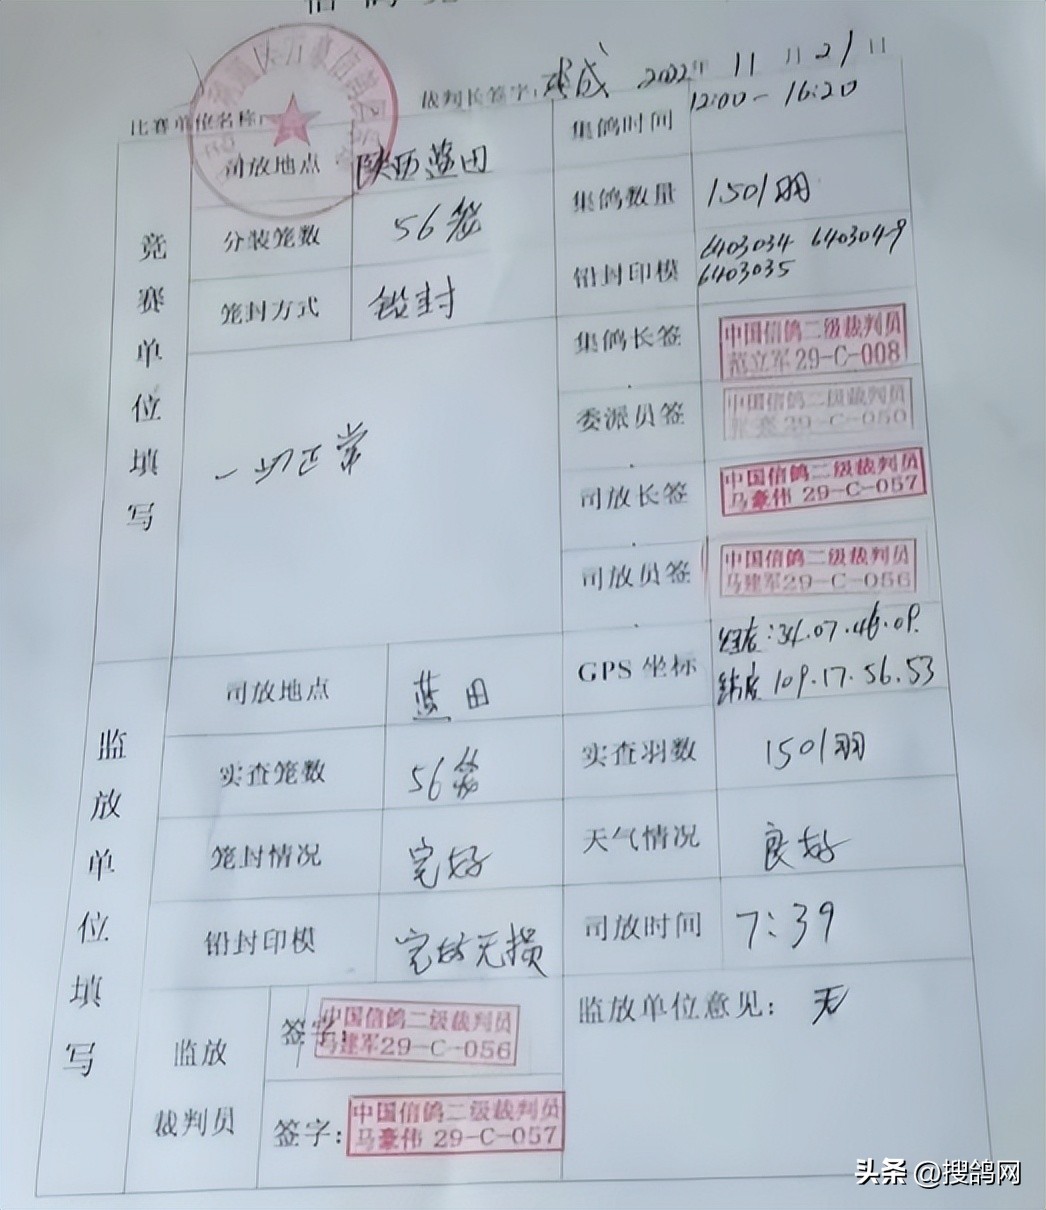 比赛单位名称:
裁判长签字:
2022年 11月21日
司放地点 陕西蓝田
集鸽时间 12:00-16:20
分装笼数 56笼
集鸽数量 1501羽
笼封方式 铅封
铅封印模 6403034 6403049
6403035
竞赛单位填写
一切正常
集鸽长签 中国信鸽二级裁判员
范立军29-C-008
委派员签 中国信鸽二级裁判员
29-C-050
司放长签 中国信鸽二级裁判员
马豪伟 29-C-057
司放员签 中国信鸽二级裁判员
马建军29-C-056
监放单位填写
司放地点 蓝田
GPS 坐标 经度:34.07.46.09.
纬度 109.17.56.53
实查笼数 56笼
实查羽数 1501羽
笼封情况 完好
天气情况 良好
铅封印模 完好无损
司放时间 7:39
监放裁判员
签字: 中国信鸽二级裁判员
马建军29-C-056
签字: 中国信鸽二级裁判员
马豪伟 29-C-057
监放单位意见: 无
头条 @搜鸽网